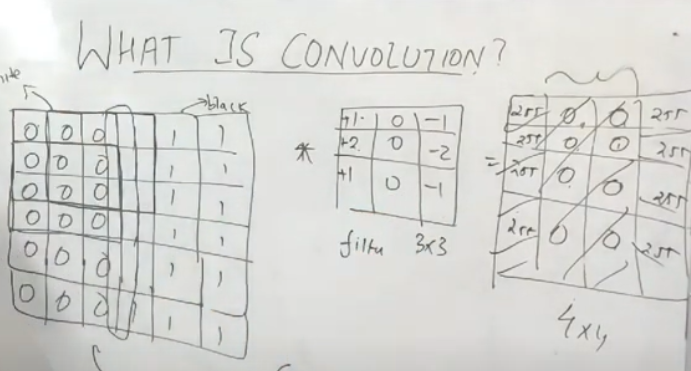 WHAT IS CONVOLUTION?
black
0 0 0 1 1
0 0 0 1 1
0 0 0 1 1
0 0 0 1 1
0 0 0 1 1
0 0 0 1 1
*
+1 0 -1
+2 0 -2
+1 0 -1
filter 3x3
=
255 0 0 255
255 0 0 255
255 0 0 255
255 0 0 255
4x4